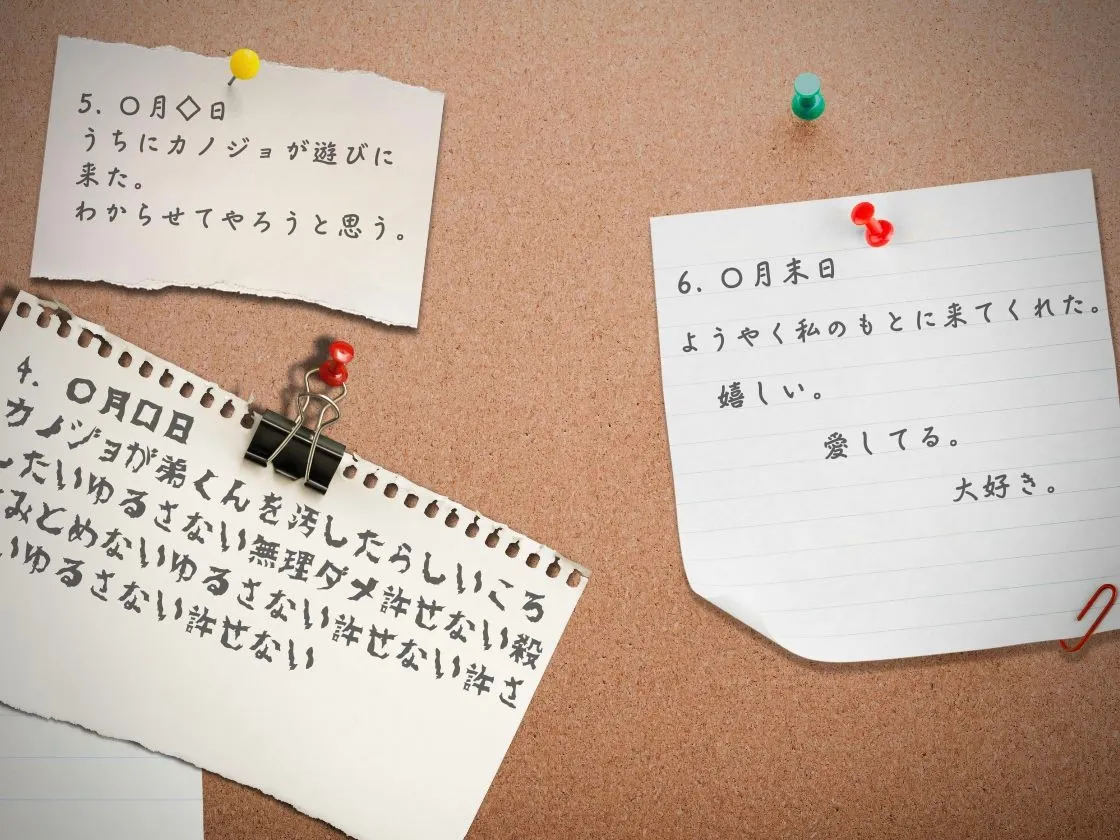 5. 〇月◇日
うちにカノジョが遊びに
来た。
わからせてやろうと思う。
4. 〇月口日
カノジョが弟くんを汚したらしいころ
たいゆるさない無理ダメ許せない殺
みとめないゆるさない許せない許さ
いゆるさない許せない
6. 〇月末日
ようやく私のもとに来てくれた。
嬉しい。
愛してる。
大好き。